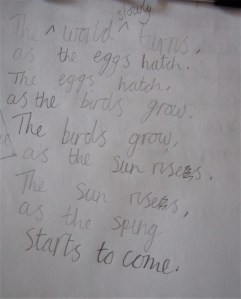 slowly
The ^ world ^ turns,
as the eggs hatch.
The eggs hatch,
as the birds grow.
The birds grow,
as the sun rises.
The sun rises,
as the sping
starts to come.